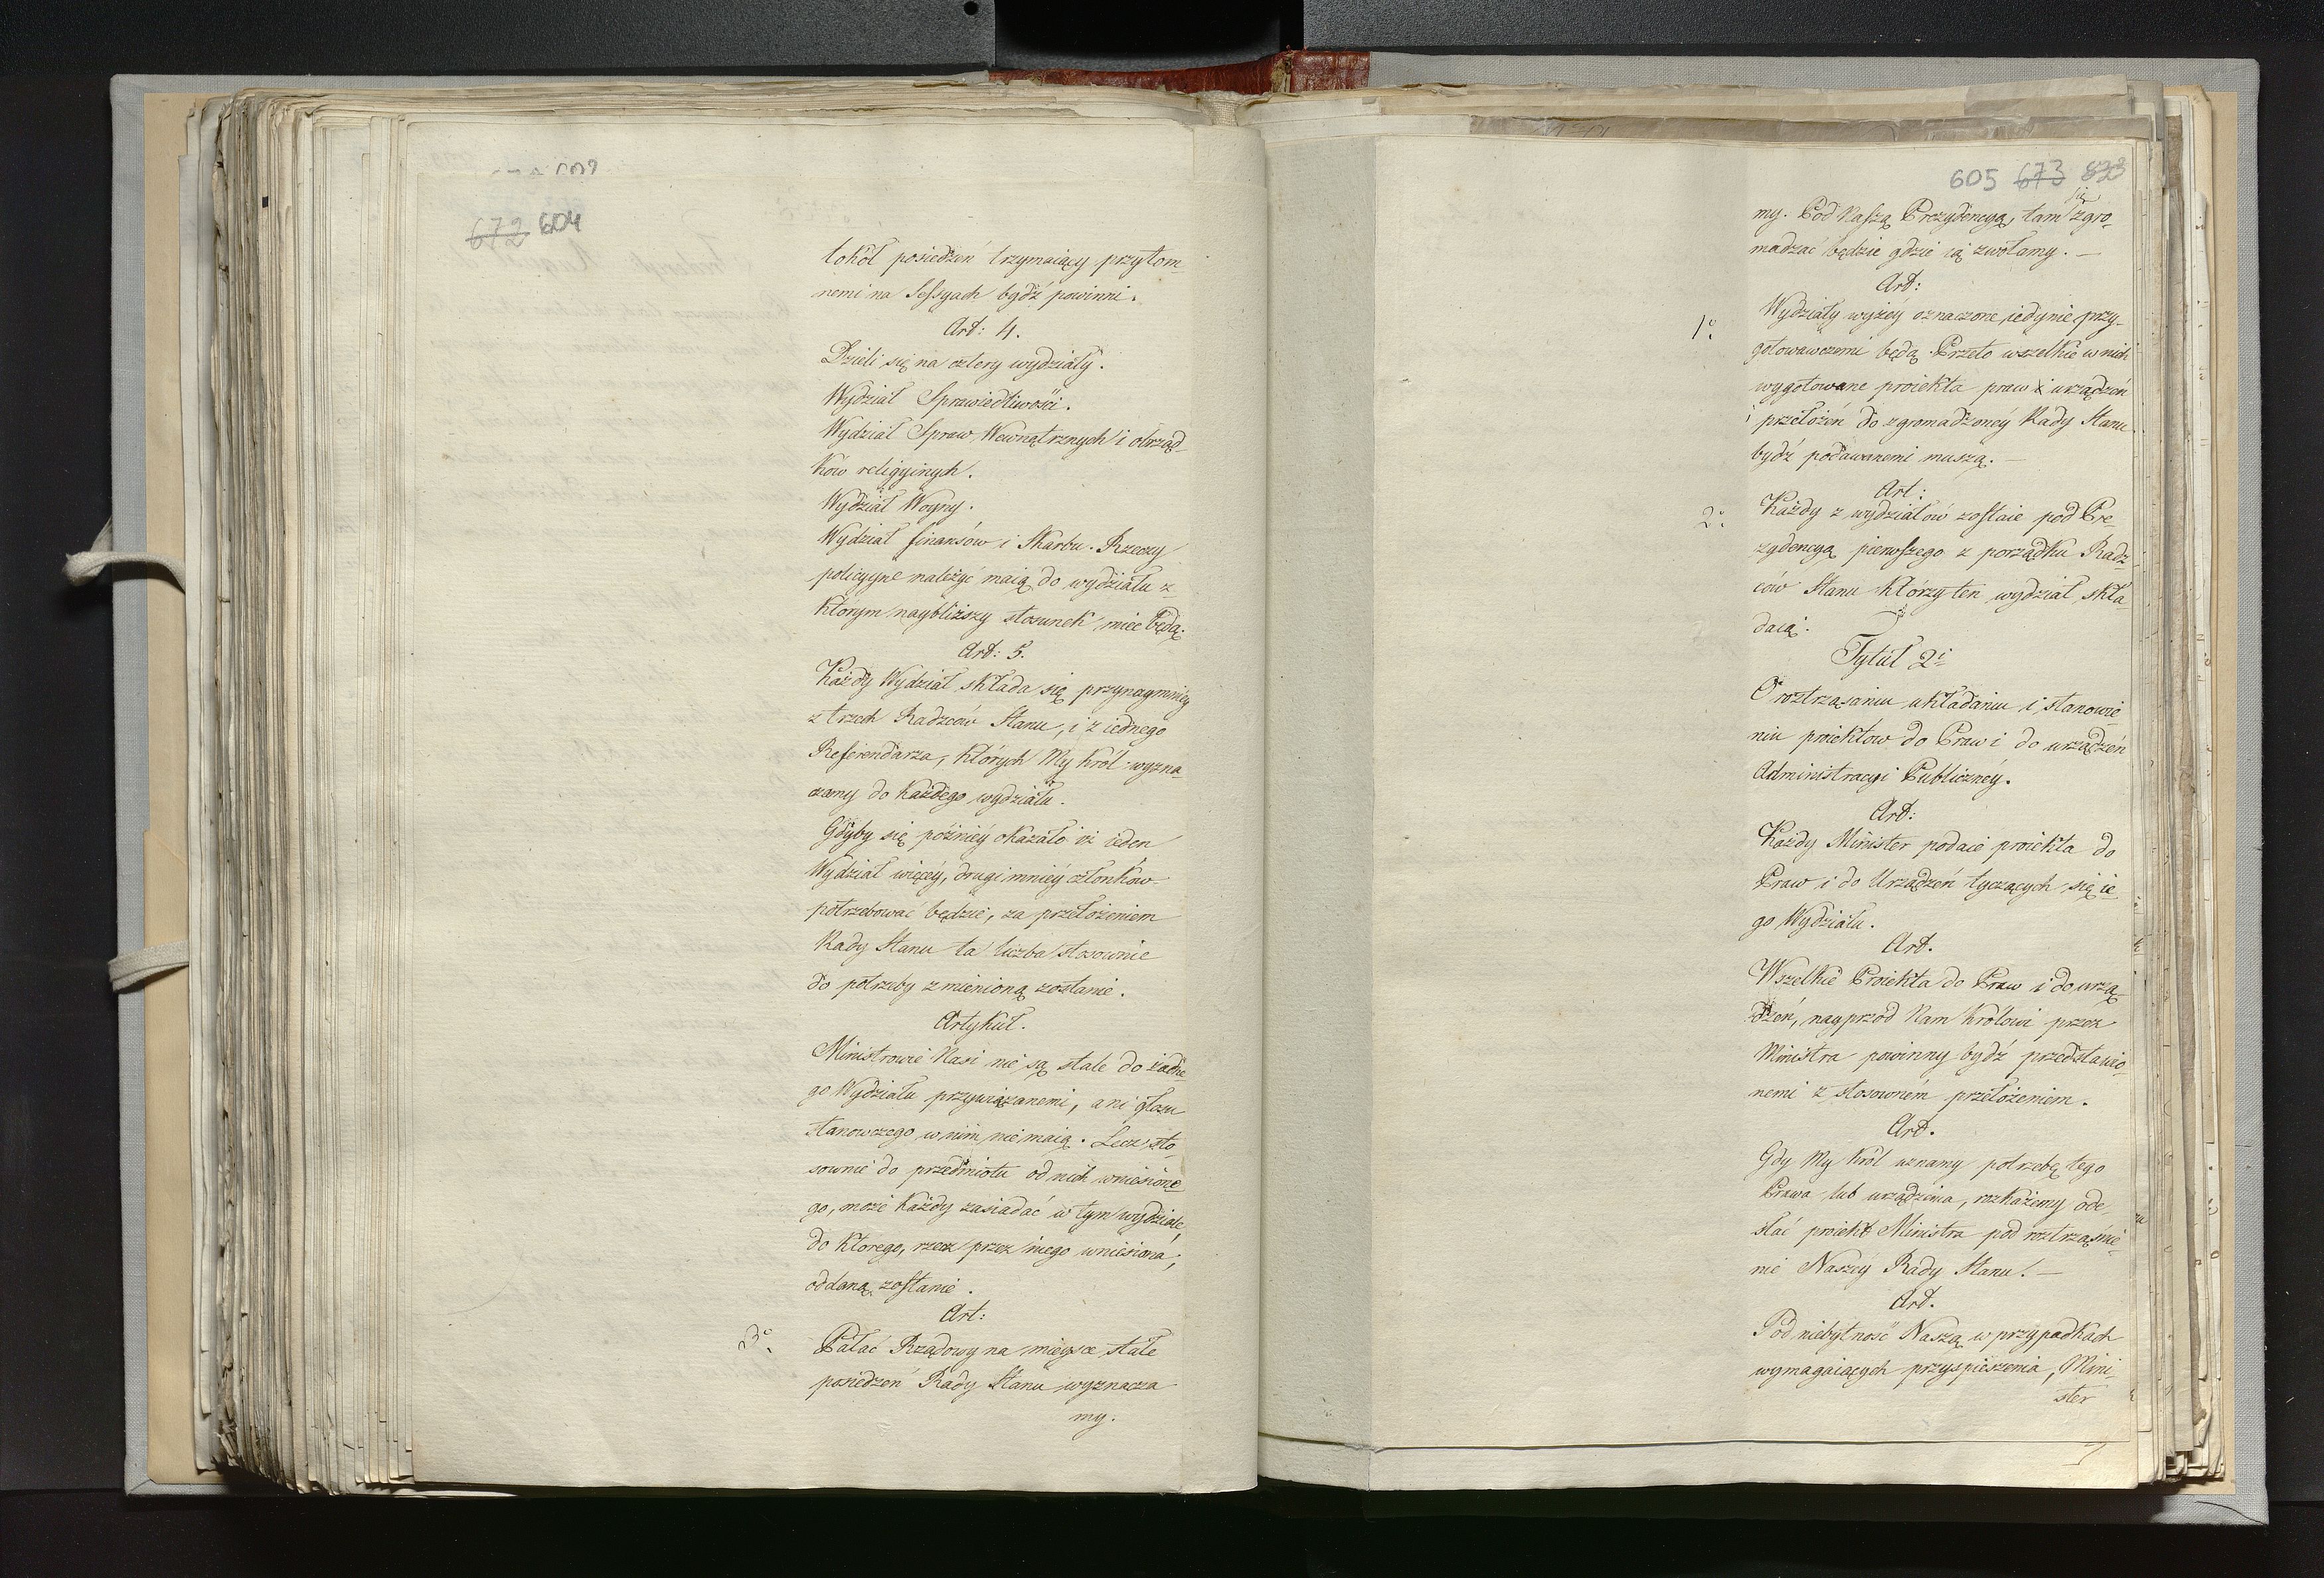 672 604
tokół posiedzeń trzymaiący przytom
nemi na Sessyach bydź powinni.
Art: 4.
Dzieli się na cztery wydziały.
Wydział Sprawiedliwości.
Wydział Spraw Wewnątrznych i obrząd-
ków religyinych.
Wydział Woyny.
Wydział finansów i Skarbu. Rzeczy
policyyne należyć maią do wydziału z
którym naybliższy stosunek mieć będą.
Art: 5.
Każdy Wydział składa się przynaymniey
z trzech Radzców Stanu, i z iednego
Referendarza, których My Król wyzna-
czamy do każdego wydziału.
Gdyby się późniéy okazało iż ieden
Wydział więcéy, drugi mniéy członków
potrzebować będzie, za przełożeniem
Rady Stanu ta liczba stosownie
do potrzeby zmienioną zostanie.
Artykuł.
Ministrowie Nasi nie są stale do żadne-
go Wydziału przywiązanemi, ani głosu
stanowczego w nim nie maią. Lecz sto-
sownie do przedmiotu od nich wniesione-
go, może każdy zasiadać w tym wydziale,
do którego, rzecz przez niego wniesiona,
oddaną zostanie.
Art:
3°. Pałac Rządowy na mieysce stałe
posiedzeń Rady Stanu wyznacza
my.
605 673 823
my. Pod Naszą Prezydencyą, tam się zgro-
madzać będzie gdzie ią zwołamy. —
Art:
1°. Wydziały wyżéy oznaczone, iedynie przy-
gotowawczemi będą. Przeto wszelkie w nich
wygotowane proiekta praw i urządzeń
i przełożeń do zgromadzonéy Rady Stanu
bydź podawanemi muszą. —
Art:
2°. Każdy z wydziałów zostaie pod Pre-
zydencyą pierwszego z porządku Radz-
ców Stanu którzy ten wydział skła-
daią.
Tytuł 2i
O roztrząsaniu układaniu i stanowie-
niu proiektow do Praw i do urządzeń
Administracyi Publicznéy.
Art:
Każdy Minister podaie proiekta do
Praw i do Urządzeń tyczących się ie-
go Wydziału.
Art.
Wszelkie Proiekta do Praw i do urzą-
dzeń, nayprzód Nam Królowi przez
Ministra powinny bydź przedstawio-
nemi z stosowném przełożeniem.
Art.
Gdy My Król uznamy potrzebę tego
Prawa lub urządzenia, rozkażemy ode-
słać proiekt Ministra pod roztrząśnie-
nie Naszéy Rady Stanu. —
Art.
Pod niebytność Naszą w przypadkach
wymagaiących przyspieszenia, Mini-
ster